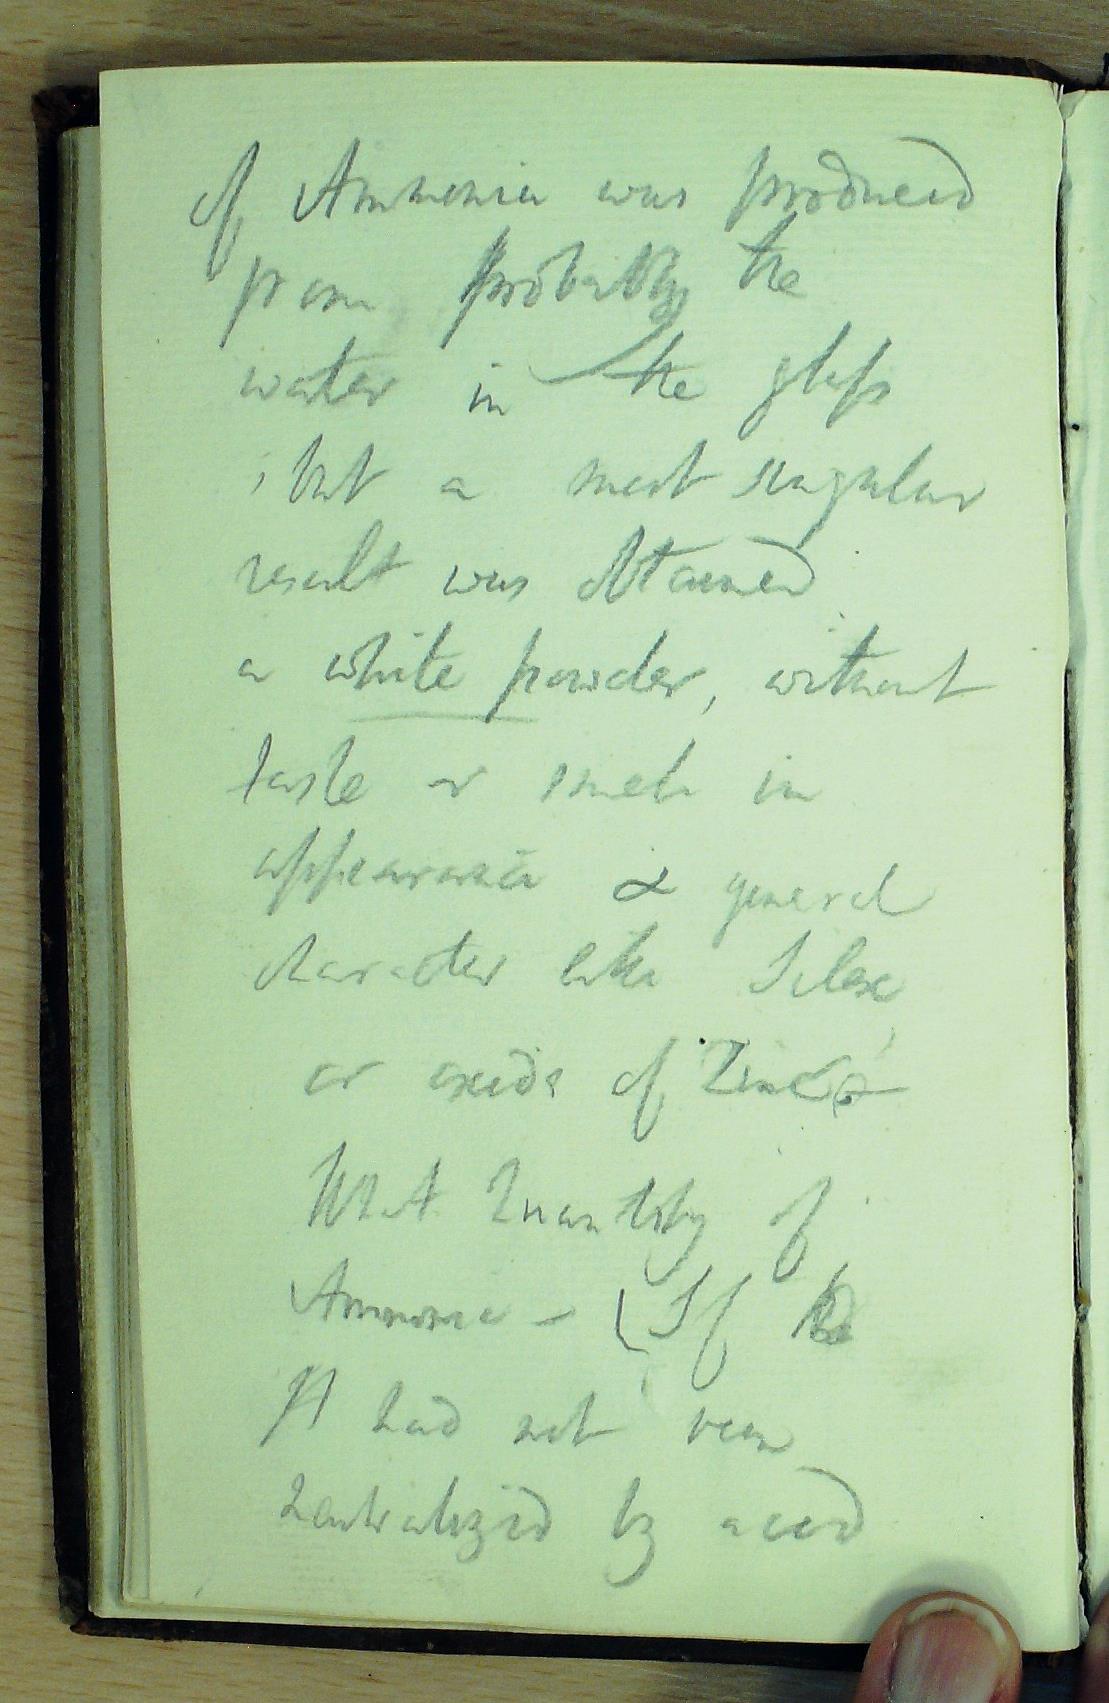 of Ammonia was produced
from probably the
water in the glass
, but a most singular
result was obtained
a white powder, without
taste or smell in
appearance & general
character like Silex
or oxide of Zinc
What Quantity of
Ammonia - (If
it had not been
neutralized by acid